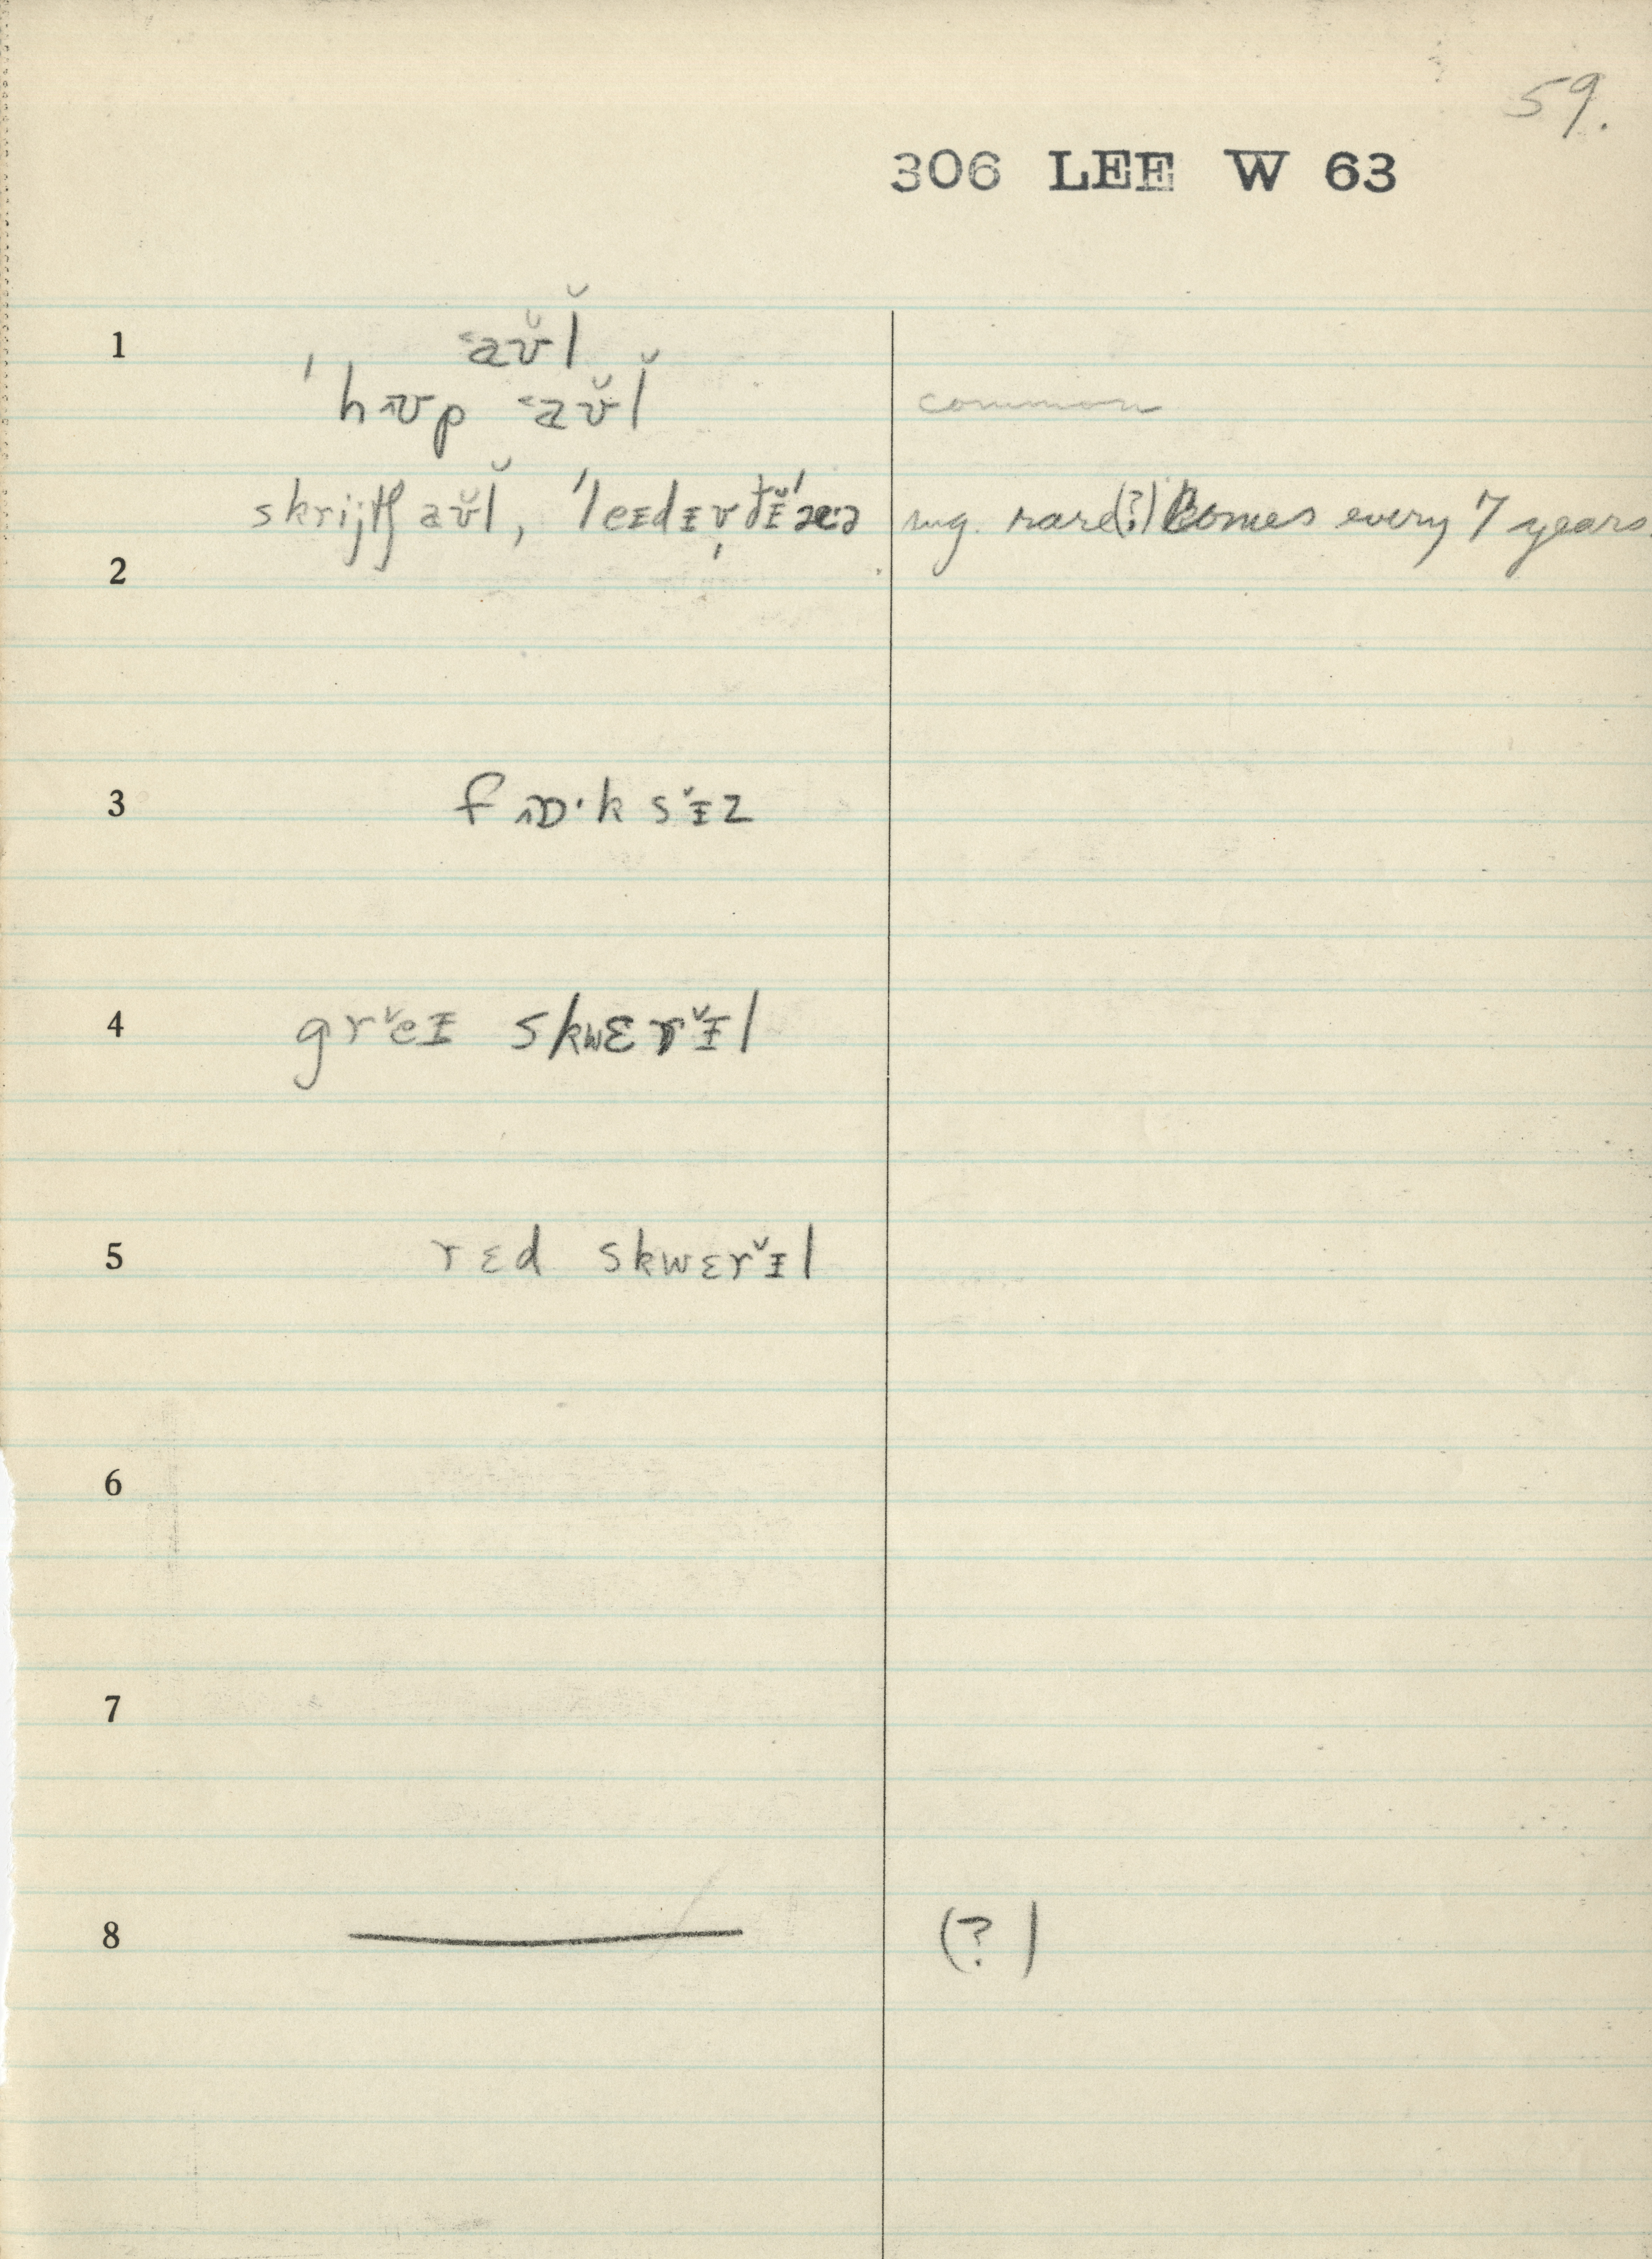 59.
306 LEE W 63
1 aʊ̆l̆
ˈhʊp aʊ̆l̆ common
skrijtʃ aʊ̆l̆, mg. rare (?) Comes every 7 years.
2
3 fɒ·ksɪ̆z
4 grĕɪ skwɛrɪ̆l
5 rɛd skwɛrɪ̆l
6
7
8 — (?)